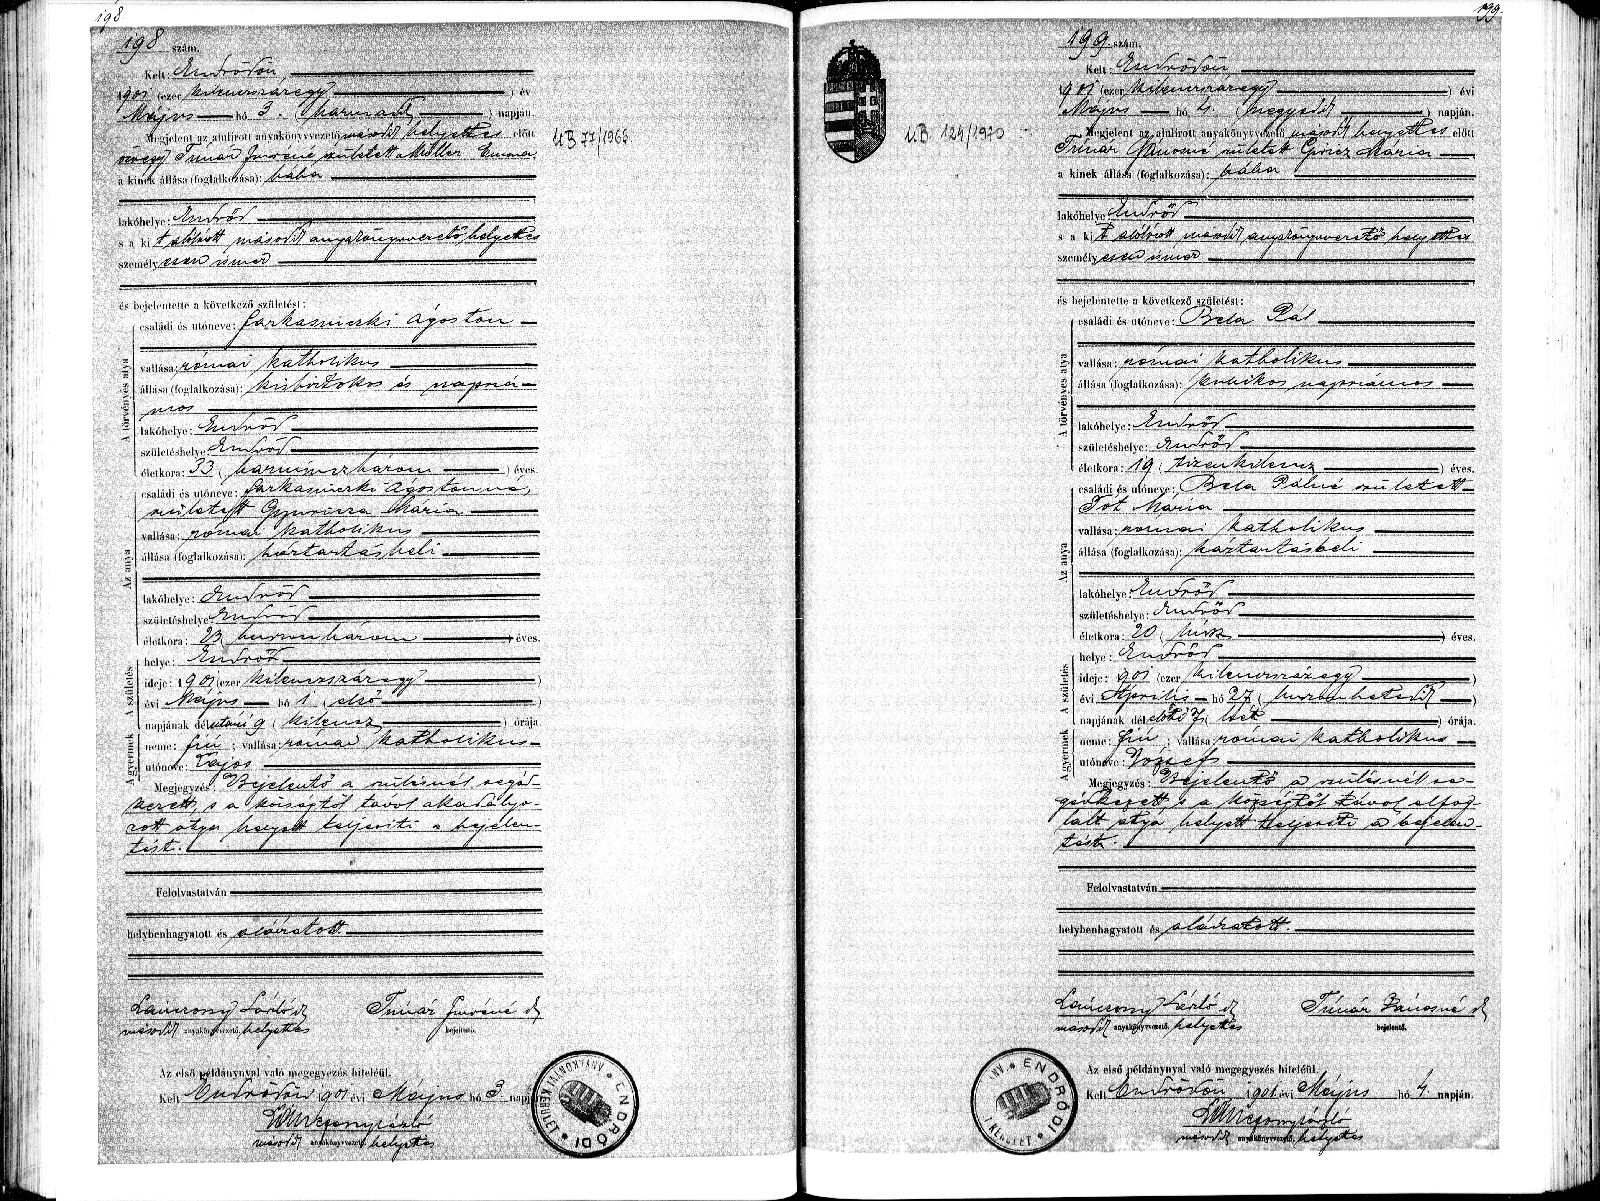 198
198 szám.
Kelt Endrődön,
1901 (ezer kilenczszázegy) év
Május hó 3. (harmadik) napján.
Megjelent az alulirott anyakönyvvezető másodh helyettes előtt
özvegy Tímár Imréné született Müller Emma
a kinek állása (foglalkozása): bába
lakóhelye: Endrőd
s a kit alólírott másodh anyakönyvvezető helyettes
személyesen ismer
és bejelentette a következő születést:
A törvényes atya
családi és utóneve: Farkasinszki Ágoston
vallása: római katholikus
állása (foglalkozása): kisbirtokos és napszá-
mos
lakóhelye: Endrőd
születéshelye: Endrőd
életkora: 33 (harminczhárom) éves.
Az anya
családi és utóneve: Farkasinszki Ágostonné,
született Gyuricza Mária
vallása: római katholikus
állása (foglalkozása): háztartásbeli
lakóhelye: Endrőd
születéshelye: Endrőd
életkora: 23 (huszonhárom) éves.
A születés
helye: Endrőd
ideje: 1901 (ezer kilenczszázegy)
évi Május hó 1 (első)
napjának délutáni 9 (kilencz) órája.
A gyermek
neme: fiú; vallása: római katholikus
utóneve: Lajos
Megjegyzés: Bejelentő a szülésnél segéd-
kezett, s a községtől távol akadályo-
zott atya helyett teljesíti a bejelen-
tést.
Felolvastatván
helybenhagyatott és aláíratott.
Lánczony László
másodh anyakönyvvezető helyettes
Tímár Imréné
bejelentő.
Az első példánynyal való megegyezés hiteléül.
Kelt Endrődön 1901 évi Május hó 3 napján
másodh anyakönyvvezető helyettes
ENDRŐDI ANYAKÖNYVI KERÜLET
UB 77/1966.
199.
199. szám.
Kelt: Endrődön
1901 (ezer kilenczszázegy) évi
Május hó 4. (negyedik) napján.
Megjelent az alulirott anyakönyvvezető másodh helyettes előtt
Tímár Jánosné született Giricz Mária
a kinek állása (foglalkozása): bába
lakóhelye: Endrőd
s a kit alólírott másodh anyakönyvvezető helyettes
személyesen ismer
és bejelentette a következő születést:
A törvényes atya
családi és utóneve: Bela Pál
vallása: római katholikus
állása (foglalkozása): kubikos napszámos
lakóhelye: Endrőd
születéshelye: Endrőd
életkora: 19 (tizenkilencz) éves.
Az anya
családi és utóneve: Bela Pálné született
Tót Mária
vallása: római katholikus
állása (foglalkozása): háztartásbeli
lakóhelye: Endrőd
születéshelye: Endrőd
életkora: 20 (húsz) éves.
A születés
helye: Endrőd
ideje: 1901 (ezer kilenczszázegy)
évi Április hó 27 (huszonhetedik)
napjának délelőtti 7 (hét) órája.
A gyermek
neme: fiú; vallása: római katholikus
utóneve: József
Megjegyzés: Bejelentő a szülésnél se-
gédkezett s a községtől távol elfog-
lalt atya helyett teljesíti a bejelen-
tést.
Felolvastatván
helybenhagyatott és aláíratott.
Lánczony László
másodh anyakönyvvezető helyettes
Tímár Jánosné
bejelentő.
Az első példánynyal való megegyezés hiteléül.
Kelt Endrődön 1901 évi Május hó 4 napján.
másodh anyakönyvvezető helyettes
ENDRŐDI ANY. KERÜLET
UB 124/1970